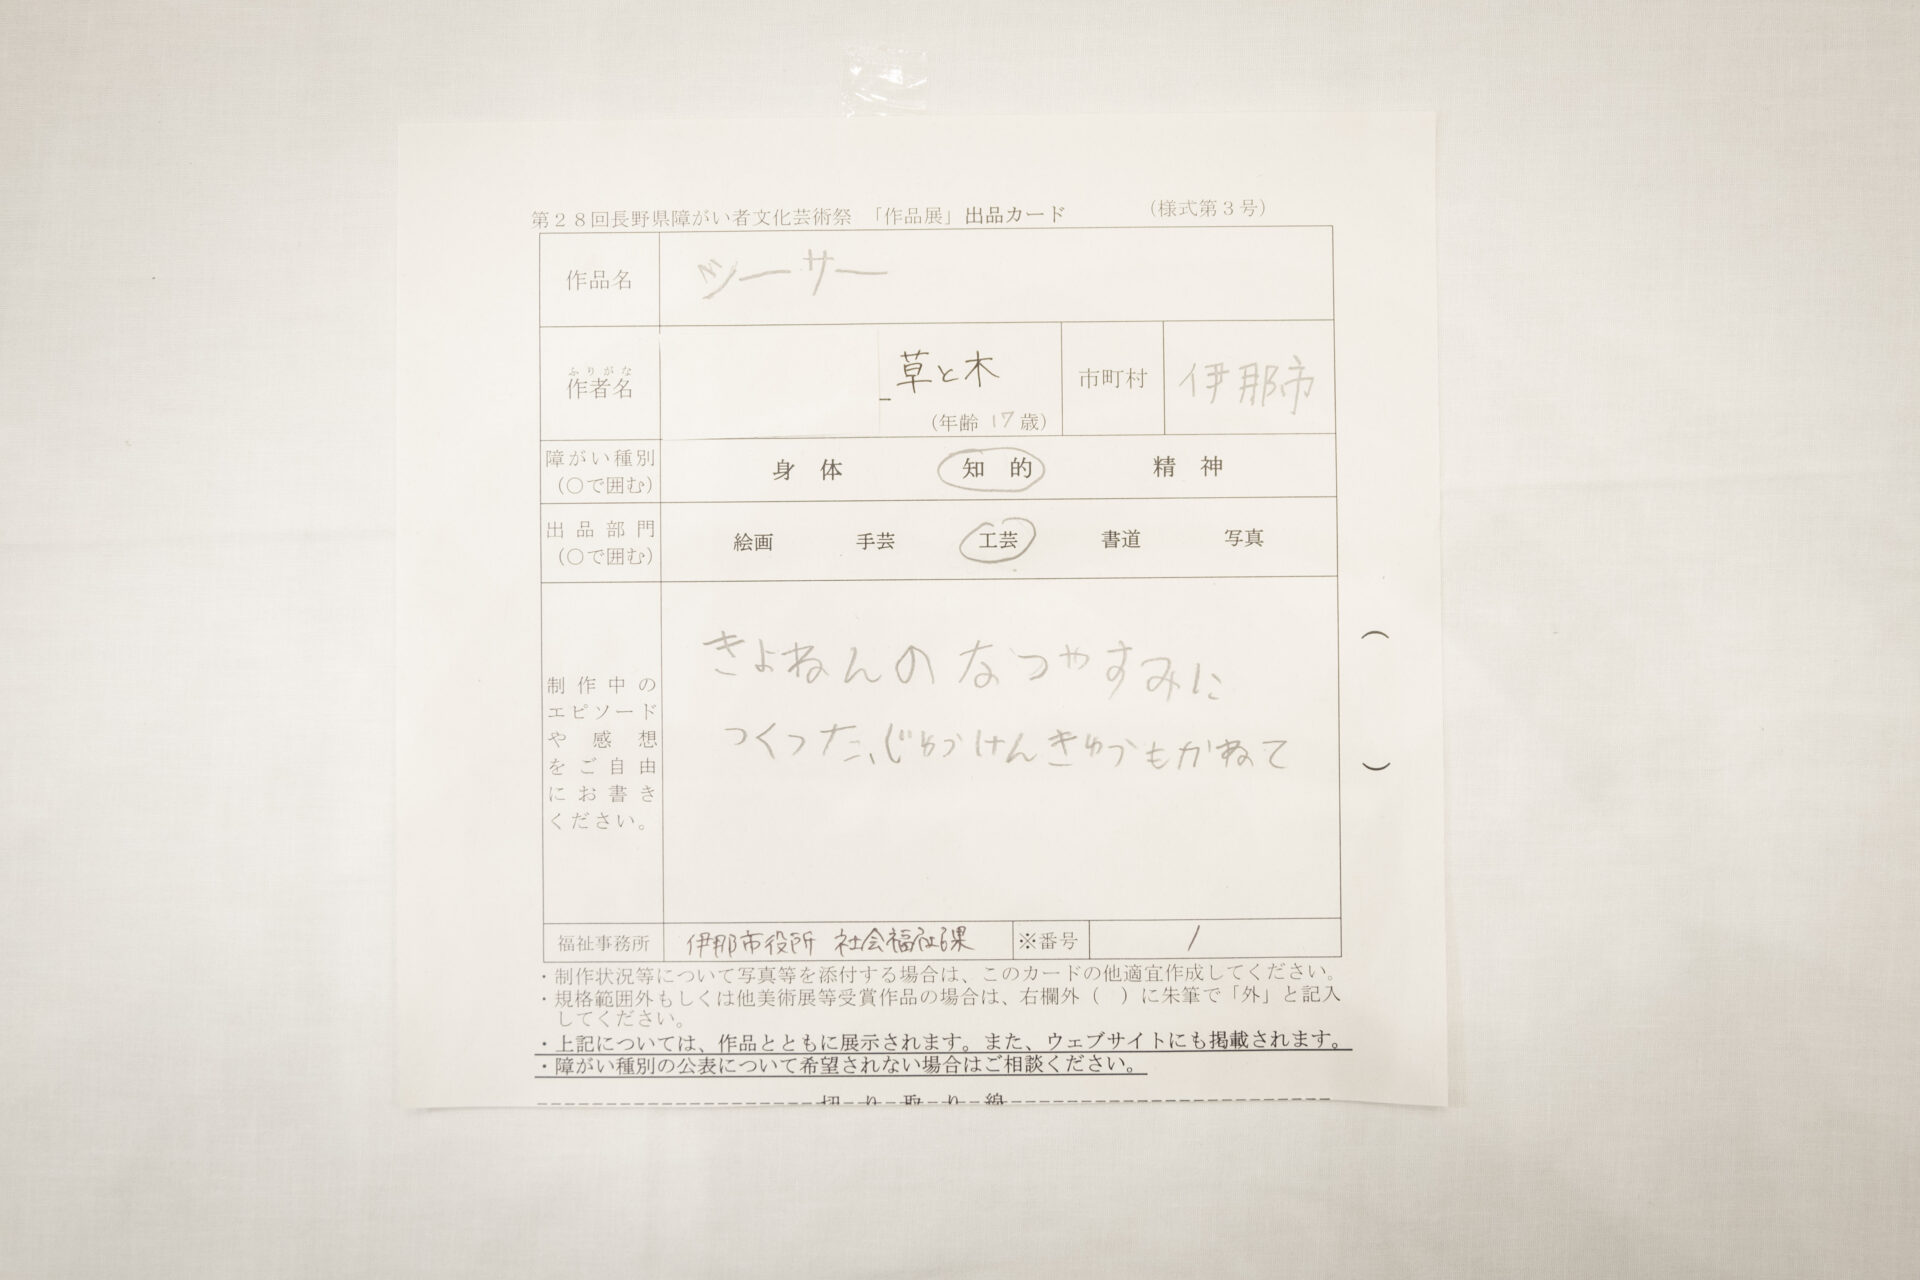 第28回長野県障がい者文化芸術祭 「作品展」出品カード (様式第3号)
作品名 シーサー
ふりがな
作者名 草と木 市町村 伊那市
(年齢 17 歳)
障がい種別 身 体 知 的 精 神
(○で囲む)
出品部門 絵画 手芸 工芸 書道 写真
(○で囲む)
制作中の
エピソード
や感想
をご自由
にお書き
ください。
きょねんの なつやすみに
つくった、じゆうけんきゅうもかねて
( )
福祉事務所 伊那市役所 社会福祉課 ※番号 1
・制作状況等について写真等を添付する場合は、このカードの他適宜作成してください。
・規格範囲外もしくは他美術展等受賞作品の場合は、右欄外( )に朱筆で「外」と記入
してください。
・上記については、作品とともに展示されます。また、ウェブサイトにも掲載されます。
・障がい種別の公表について希望されない場合はご相談ください。
切り取り線